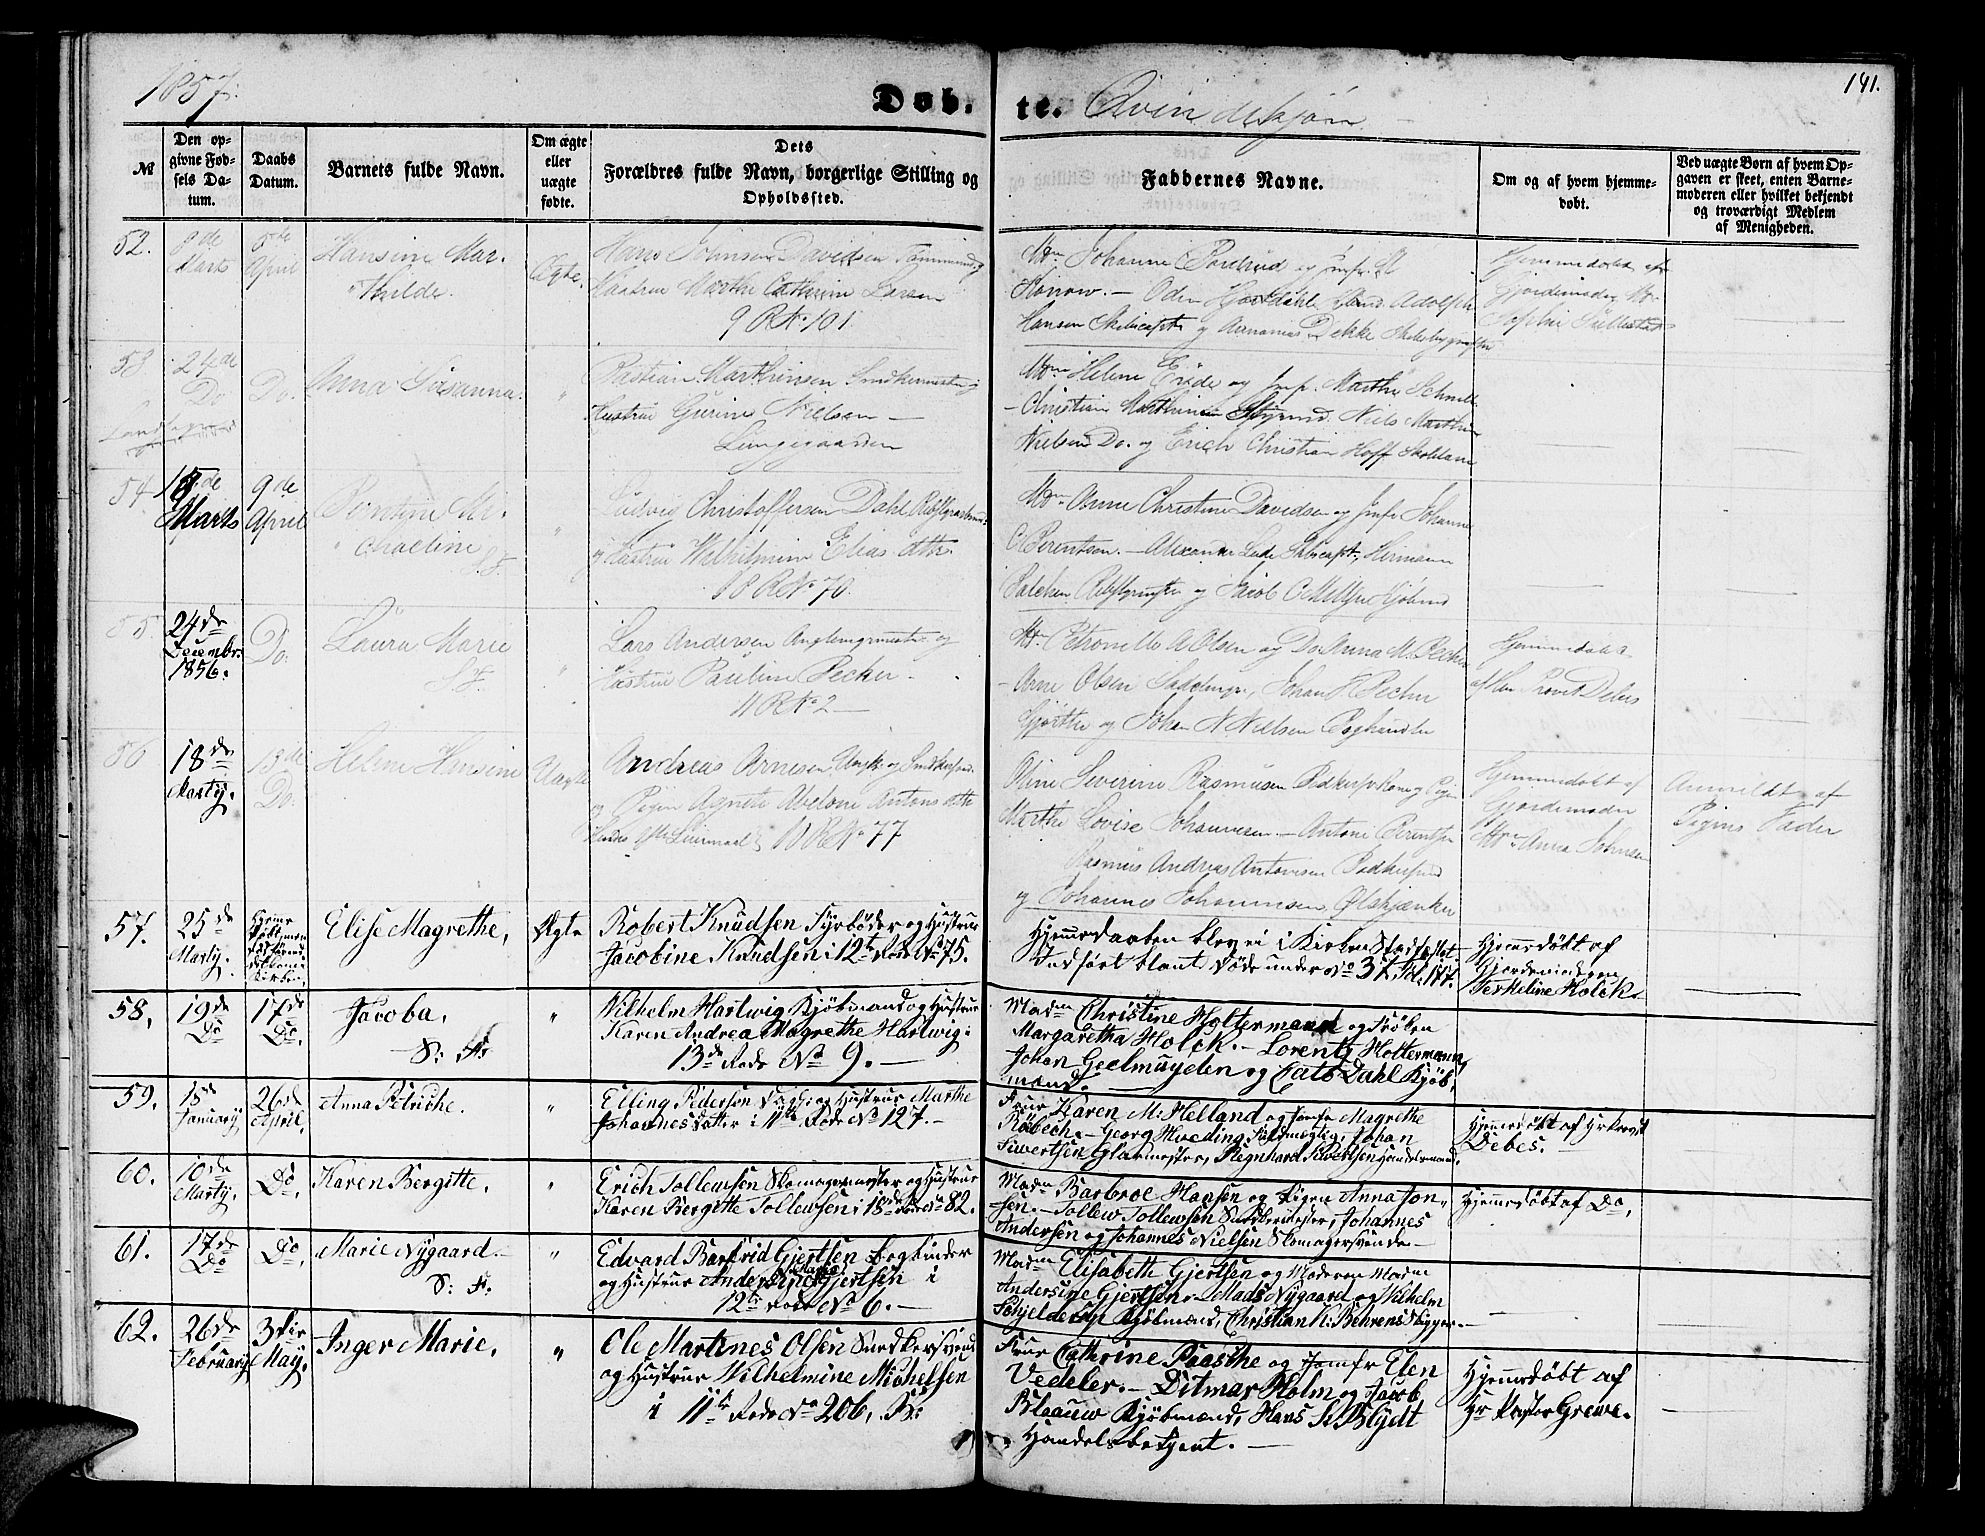 1857.
Døb. te. Qvindekjøn
191.
№
Den opgivne Fødsels Datum.
Daabs Datum.
Barnets fulde Navn.
Om ægte eller uægte fødte.
Dets Forældres fulde Navn, borgerlige Stilling og Opholdssted.
Faddernes Navne.
Om og af hvem hjemmedøbt.
Ved uægte Børn af hvem Opgaven er skeet, enten Barnemoderen eller hvilket bekjendt og troværdigt Medlem af Menigheden.
52.
8de Marts
5te April
Hansine Mathilde.
Ægte.
Hans Johnsen Davidsen
Hustrue Marthe Cathrine Larsen
9 R № 101
Mdm Johanne
Konow. — Oden Hjortdahl Adolph
Hansen Skibscapt. og Ananias Dekke Skibsbygmester
Hjemmedøbt af
Gjordemoder Mdm
Sophie
53.
24de Do
Do.
Anna Susanna.
"
Bastian Marthinsen Snedkermester og
Hustrue Gurine Nielsen —
Lungegaarden
Mdm Helene og Jmfr. Marthe
— Christian Marthinsen Styrmd. Niels Marthin
Nielsen Do. og Erich Christian Hoff
54
18de Marts
9de April
Berntine Michaeline
S. F.
"
Ludvig Christoffersen Dahl
og Hustrue Wilhelmine Elias dtr.
18 R № 70.
Mdm Anne Christine Davidsen og Jmfr Johanne
C Berentsen. — Alexander Skibscapt., Hermann
og Jacob C
55.
24de Decembr. 1856.
Do.
Laura Marie
S. F.
"
Lars Andersen og
Hustrue Pauline Becker.
11 R № 2 —
Mdm Petronelle A Olsen og Do. Anna M. Becker
— Arne Olsen Johan H Becker
Gjørtler og Johan N Nielsen Boghandler
Hjemmedøbt
af Herr Provst Debes
56
18de Martij.
13de Do.
Helene Hansine
Uægte
Andreas Arnesen, Ungk. og Snedkersvd.
og Pigen Agnete Abelone Antons dtr
Hendes 1ste Leiermaal 11 R № 77
Oline Severine Rasmusen Kone og Pigen
Marthe Lovise Johannesen. — Antoni Berentsen
Rasmus Andreas Antonisen
og Johannes Johannesen, Ølskjænker
Hjemmedøbt af
Gjordemoder
Mdm Anna Johnsen
Anmeldt af
Pigens Fader
57.
25de Martij.
Elise Magrethe,
Ægte
Robert Knudsen Fyrbøder og Hustrue
Jacobine Knudsen i 12te Rode № 75.
Hjemmedaaben blev ei i Kirken Stadfæstet.
Indført blant Døde under №
Hjemmedøbt af
Gjordemoderen
Terkeline Holck.
58,
19de Do
17de Do.
Jacoba,
S: F:
"
Wilhelm Hartwig Kjøbmand og Hustrue
Karen Andrea Magrethe Hartwig i
13de Rode № 9. —
Madm Christine Holtermand og Frøken
Margaretha Holck. — Lorentz Holtermann,
Johan Geelmuyden og Cato Dahl Kjøb,
mænd. —
59.
18de January
26de April,
Anna Petriche.
"
Elling Pedersen og Hustrue Marthe
Johannesdatter i 11te Rode № 127. —
Frue Karen M: Helland og Jomfr Magrethe
Røbech. — Georg Hveding Fuldmægtig, Johan
Siwertsen Glarmester, Regnhard Siwertsen Handelsmand.
Hjemmedøbt af Hr Provst
Debes. —
60.
10de Martij.
Do.
Karen Bergitte,
"
Erich Tollewsen Skomagermester og Hustrue
Karen Bergitte Tollewsen i 18de Rode № 82.
Madm Barbroe Hansen og Pigen Anna Jon,
sen. — Tollew Tollewsen Snedkermester, Johannes
Andersen og Johannes Nielsen Skomagersvende. —
Hjemmedøbt af Do,
61.
17de Do
Do,
Marie Nygaard. —
S: F.
"
Edvard Bartrid Gjertsen Bogbinder
og Hustrue Andersine Gjertsen i
12te Rode № 6. —
Madm Elisabeth Gjertsen og Moderen Madm
Andersine Gjertsen. — Mads Nygaard og Wilhelm
Schjelderup Kjøbmænd, Christian K. Behrens
62.
26de February
3die May,
Inger Marie,
"
Ole Martines Olsen Snedkersvend
og Hustrue Wilhelmine Michelsen
i 11te Rode № 206, B:
Frue Cathrine Paasche og Jomfr Elen
Vedeler. — Ditmar Holm og Jacob
Blaauw Kjøbmænd, Hans S. Blydt
Handelsbetjent. —
Hjemmedøbt af
Hr Pastor Greve.